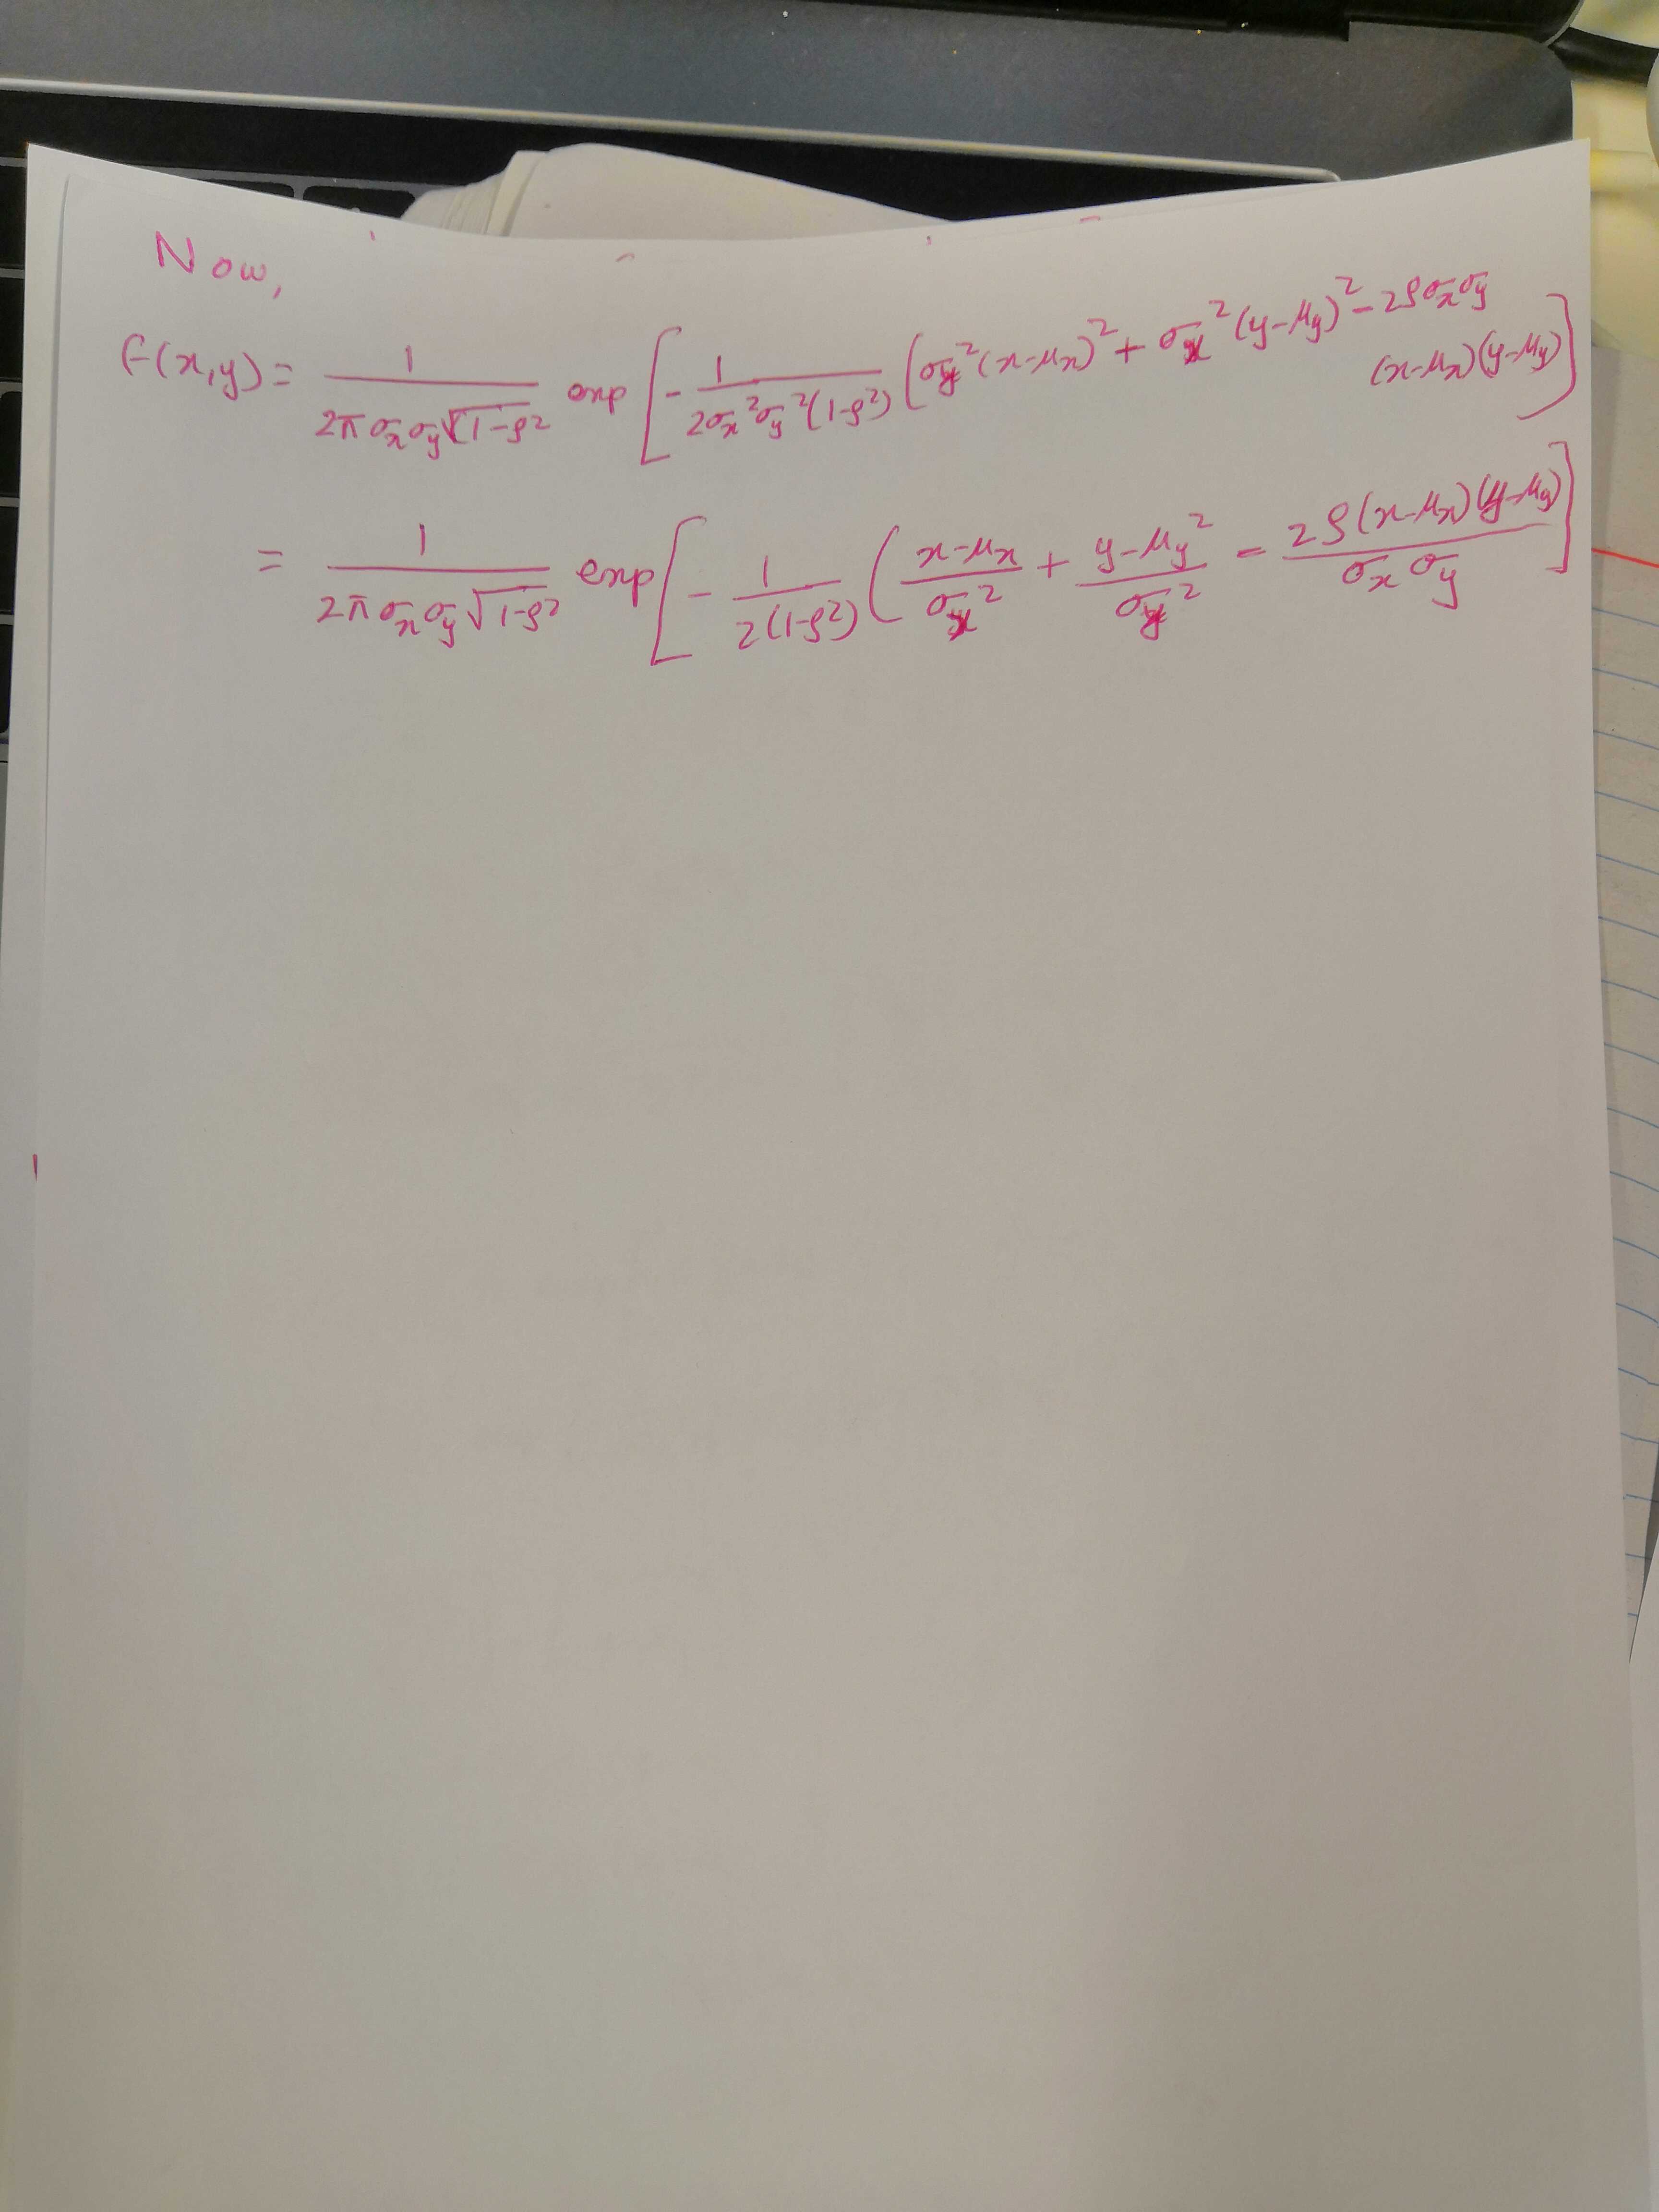 Now,
f(x,y) = \frac{1}{2\pi\sigma_x\sigma_y\sqrt{1-\rho^2}} exp [ -\frac{1}{2\sigma_x^2\sigma_y^2(1-\rho^2)} ( \sigma_y^2(x-\mu_x)^2 + \sigma_x^2(y-\mu_y)^2 - 2\rho\sigma_x\sigma_y
(x-\mu_x)(y-\mu_y) ]
= \frac{1}{2\pi\sigma_x\sigma_y\sqrt{1-\rho^2}} exp [ -\frac{1}{2(1-\rho^2)} ( \frac{x-\mu_x}{\sigma_x^2} + \frac{y-\mu_y^2}{\sigma_y^2} - \frac{2\rho(x-\mu_x)(y-\mu_y)}{\sigma_x\sigma_y} ]